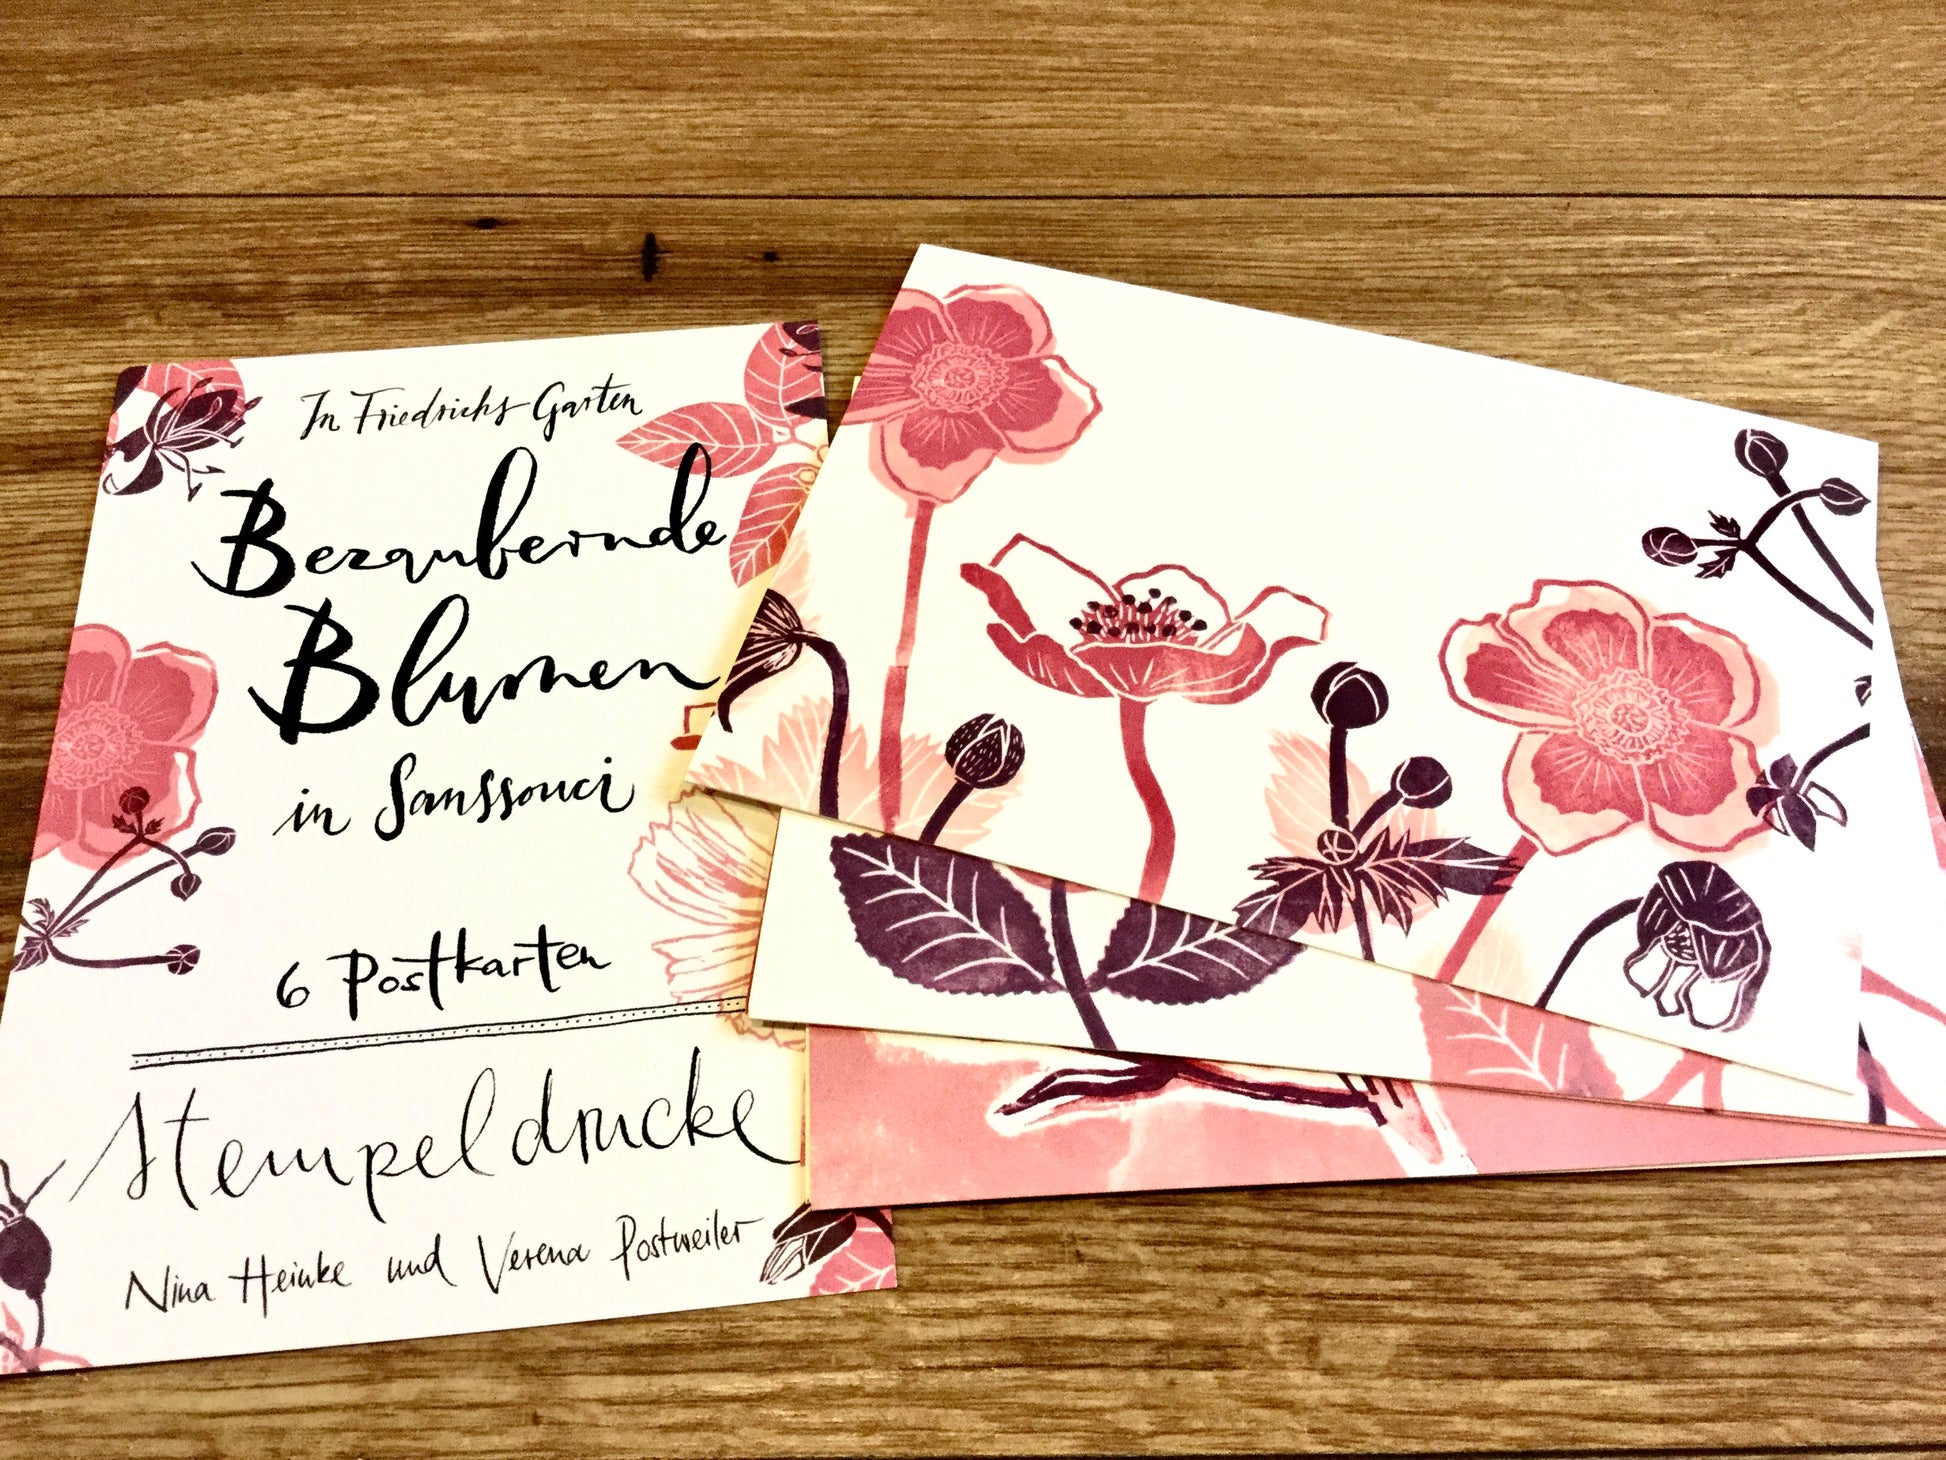 In Friedrichs Garten
Bezaubernde
Blumen
in Sanssouci
6 Postkarten
Stempeldrucke
Nina Heinke und Verena Postweiler